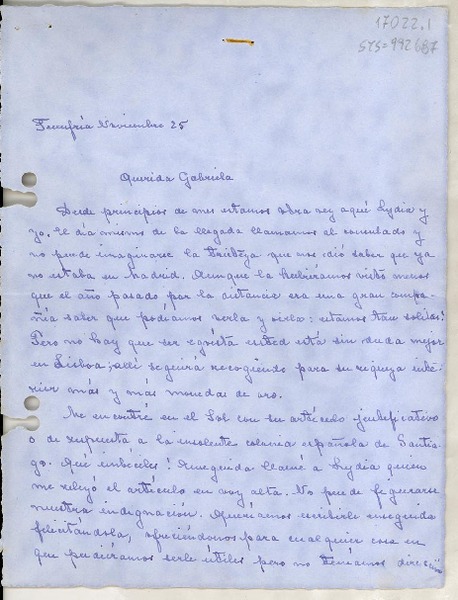 17022.1
SYS=992687
Fuenfría Noviembre 25
Querida Gabriela
Desde principios de mes estamos otra vez aquí Lydia y
yo. El día mismo de la llegada llamamos al consulado y
no puede imaginarse la tristeza que nos dió saber que ya
no estaba en Madrid. Aunque la hubiéramos visto menos
que el año pasado por la distancia era una gran compa-
ñía saber que podíamos verla y oirla: ¡estamos tan solitas!
Pero no hay que ser egoista usted está sin duda mejor
en Lisboa; allí seguirá recogiendo para su riqueza inte-
rior más y más moneda de oro.
Me encontré en el Sol con su artículo justificativo
o de respuesta a la insolente colonia española de Santia-
go. Qué imbéciles! Enseguida llamé a Lydia quien
me releyó el artículo en voz alta. No puede figurarse
nuestra indignación. Queríamos escribirle enseguida
felicitándola, ofreciéndonos para cualquier cosa en
que pudiéramos serle útiles pero no teníamos dirección